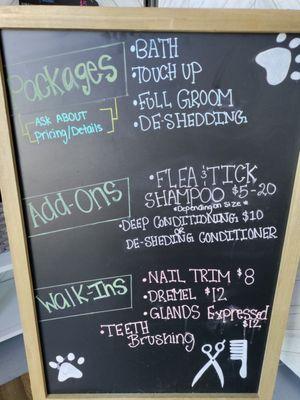 Packages
Ask About
Pricing/Details
•BATH
•TOUCH UP
•FULL GROOM
•DE-SHEDDING
Add-Ons
•FLEA & TICK
SHAMPOO $5-20
*Depending on Size*
•DEEP CONDITIONING $10
OR
DE-SHEDING CONDITIONER
Walk-Ins
•NAIL TRIM $8
•DREMEL $12
•GLANDS Expressed
$12
•TEETH
Brushing